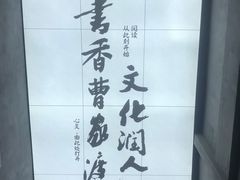 阅读
从此刻开始
文化润人
书香曹家渡
心灵·由此处打开